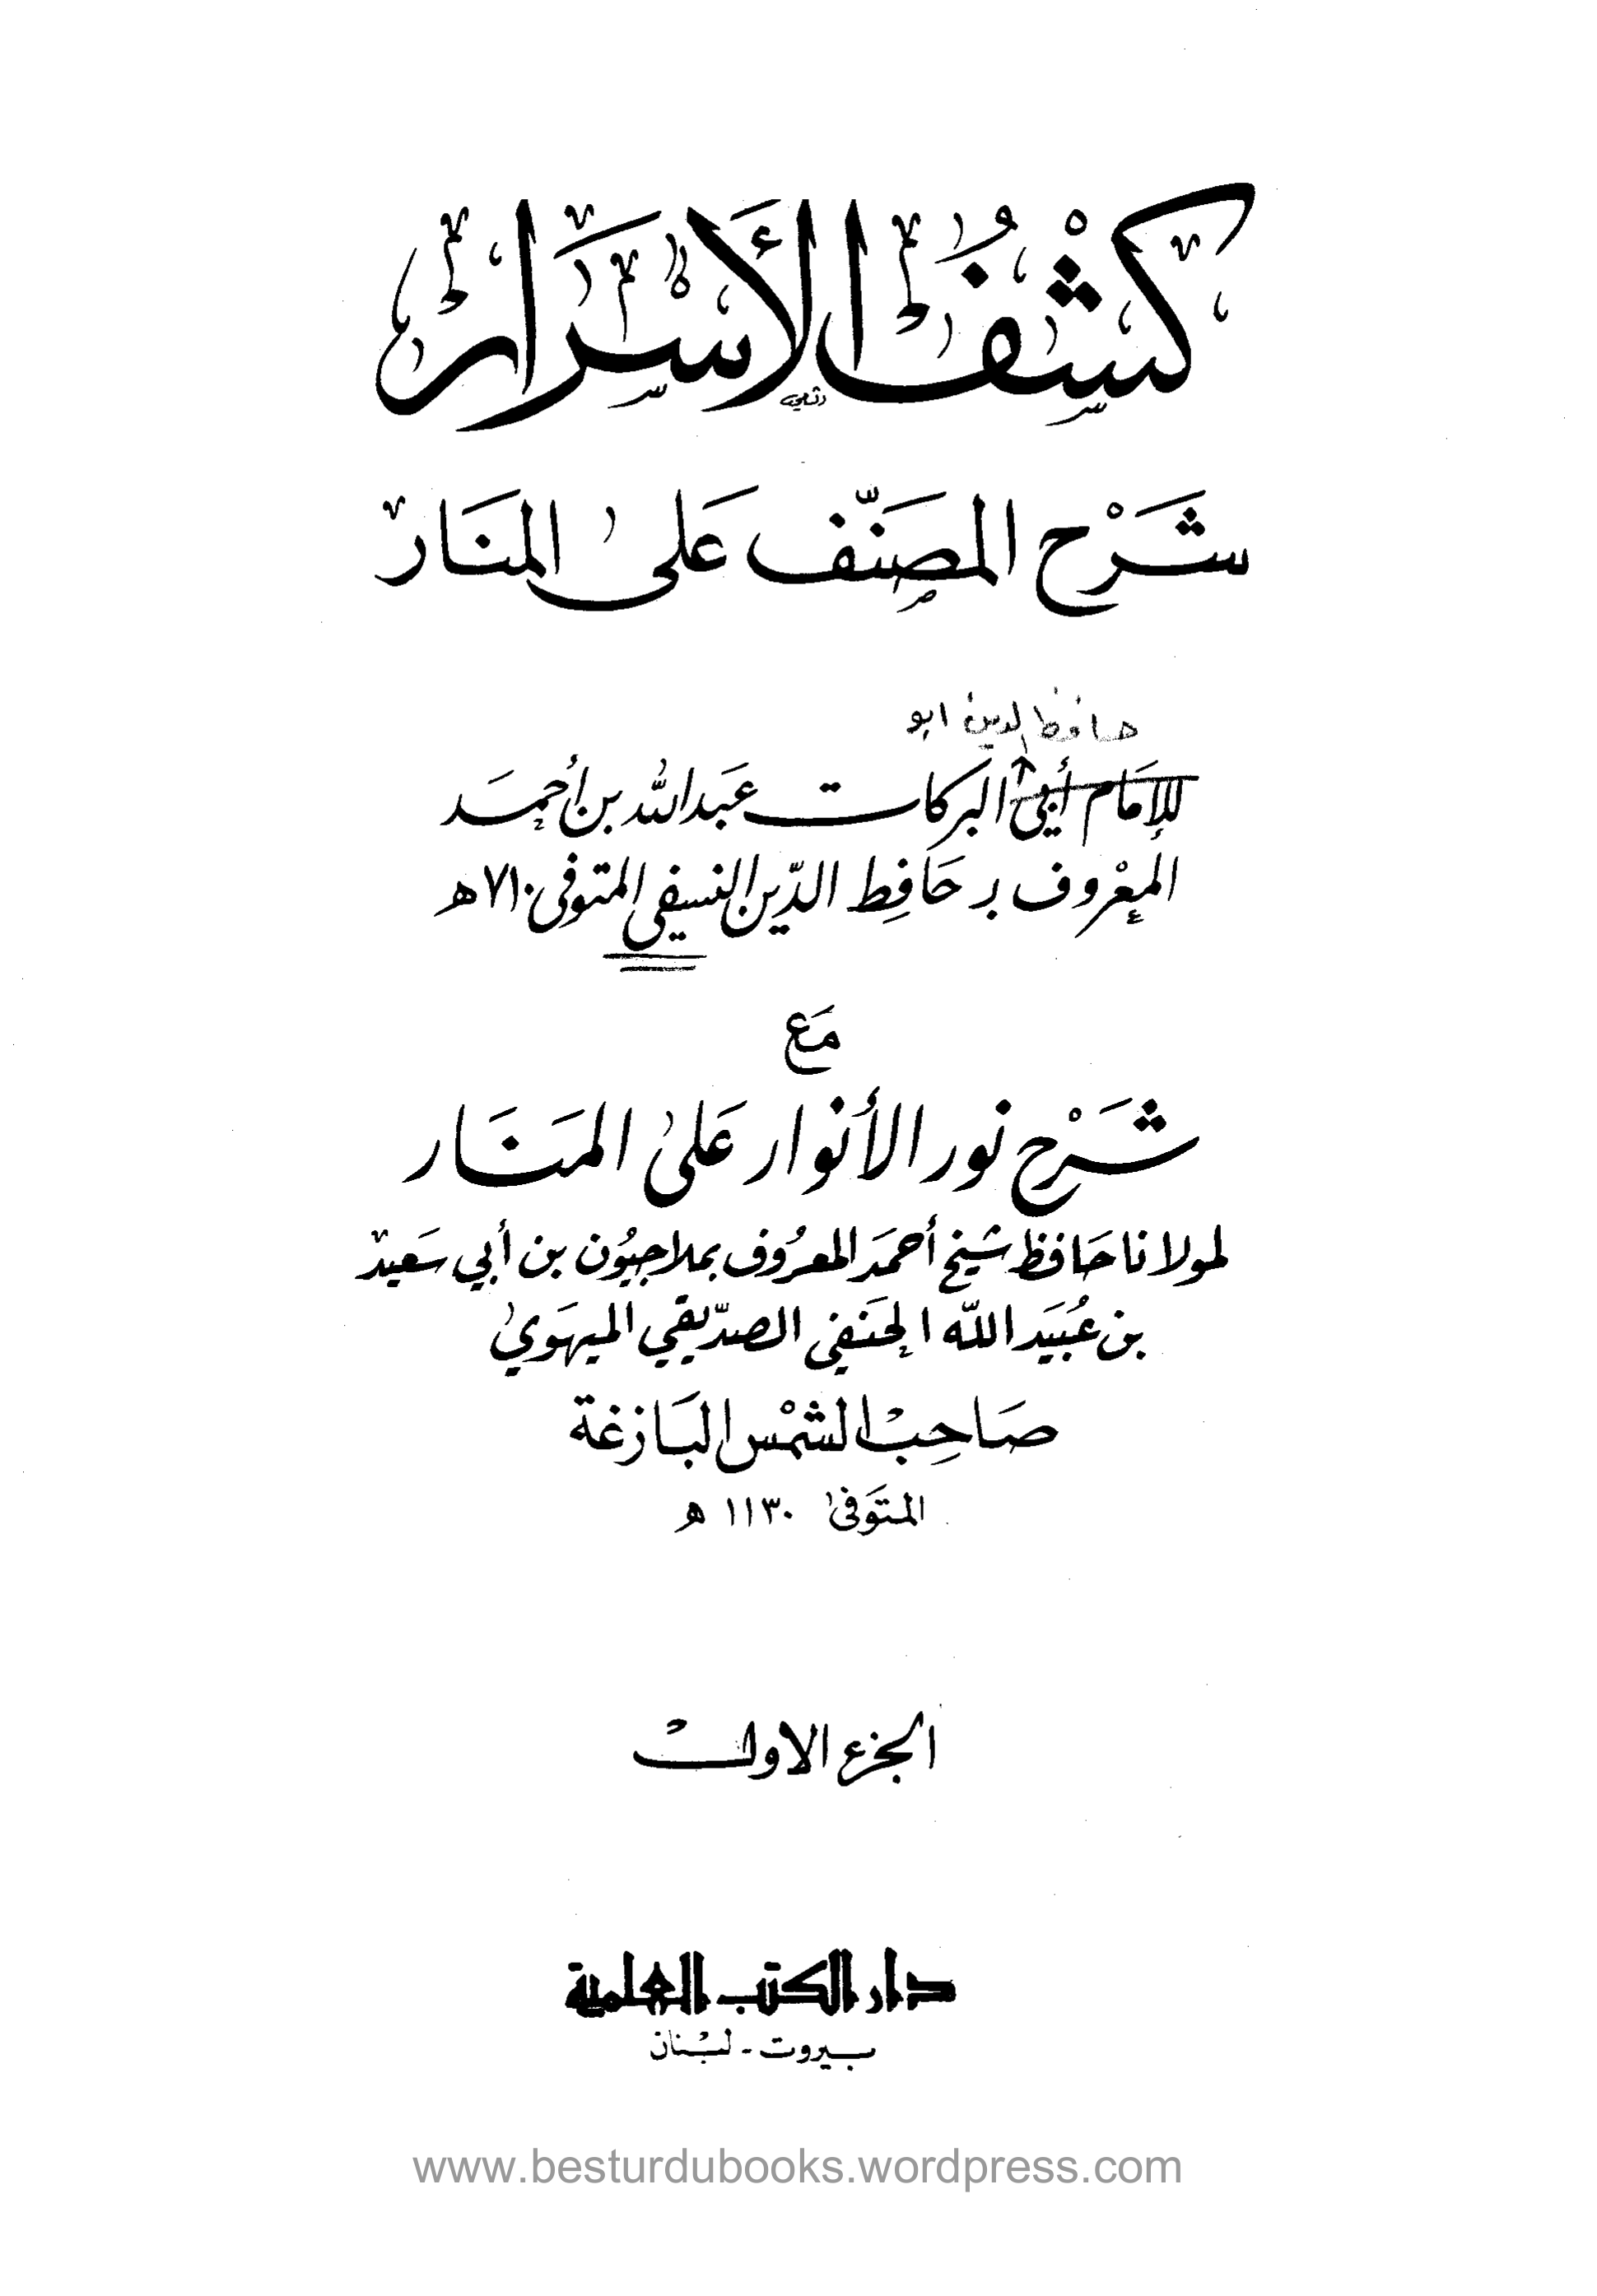 كشف الأسرار
شَرح المصَنّف عَلى المنَار
حافظ الدين ابو
للإمَام أبي البركات عَبدالله بن أحمَد
المعْروف بـ حَافِظ الدّين النسفي المتوفى ٧١٠ هـ
مَع
شَرْح نور الأنوار عَلى المنَار
لمولانا حَافظ شيَخ أحمَد المعرُوف بملاجيُون بن أبي سَعيد
بن عُبيَد الله الحنَفي الصدّيقي الميهَوي
صَاحِبْ الشمْس البَازغة
المتوَفى ١١٣٠ هـ
الجزء الاول
دار الكتب العلمية
بيروت - لبْنان
www.besturdubooks.wordpress.com